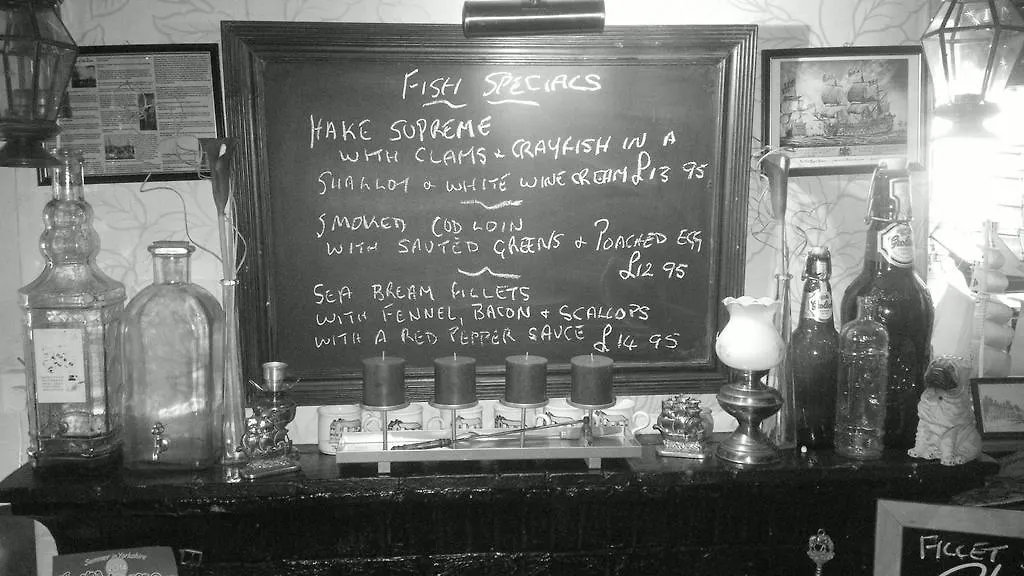 FISH SPECIALS
HAKE SUPREME
WITH CLAMS & CRAYFISH IN A
SHALLOT & WHITE WINE CREAM £13 95
SMOKED COD LOIN
WITH SAUTED GREENS & POACHED EGG
£12 95
SEA BREAM FILLETS
WITH FENNEL, BACON & SCALLOPS
WITH A RED PEPPER SAUCE £14 95
FILLET